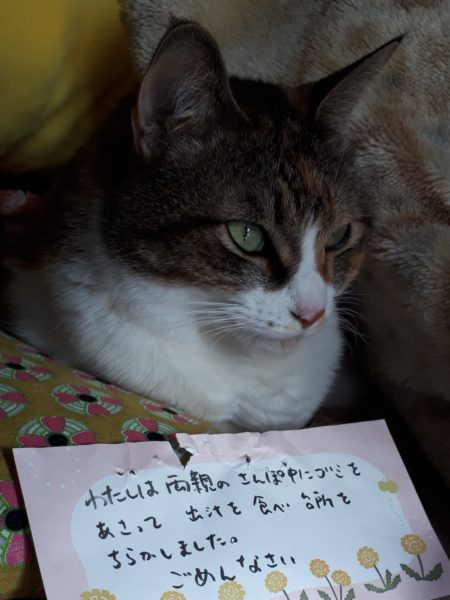 わたしは 両親の さんぽ中にゴミを
あさって 出汁を 食べ 台所を
ちらかしました。
ごめんなさい